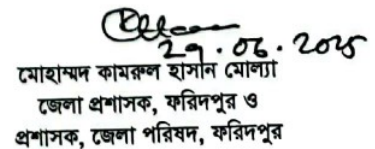 ২৭.০৬.২০২৫
মোহাম্মদ কামরুল হাসান মোল্যা
জেলা প্রশাসক, ফরিদপুর ও
প্রশাসক, জেলা পরিষদ, ফরিদপুর